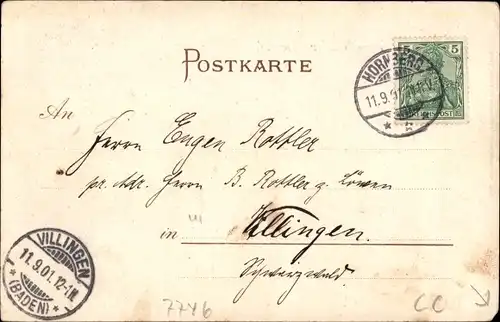 POSTKARTE
5 5
REICHSPOST
HORNBERG
11.9.01
An
Herrn Eugen Rottler
pr. Adr. Herrn B. Rottler z. Löwen
in Villingen.
Schwarzwald.
VILLINGEN
11.9.01.12-1N
* (BADEN) *
7746
CC